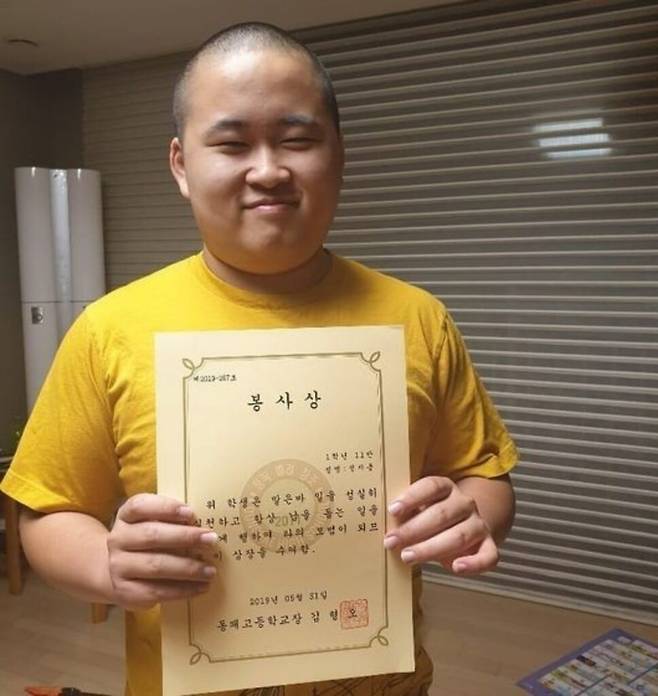 제2019-267호
봉사상
1학년 11반
성명:
위 학생은 맡은바 일을 성실히
실천하고 항상 남을 돕는 일을
에 행하여 타의 모범이 되므
이 상장을 수여함.
2019년 05월 31일
동패고등학교장 김형오